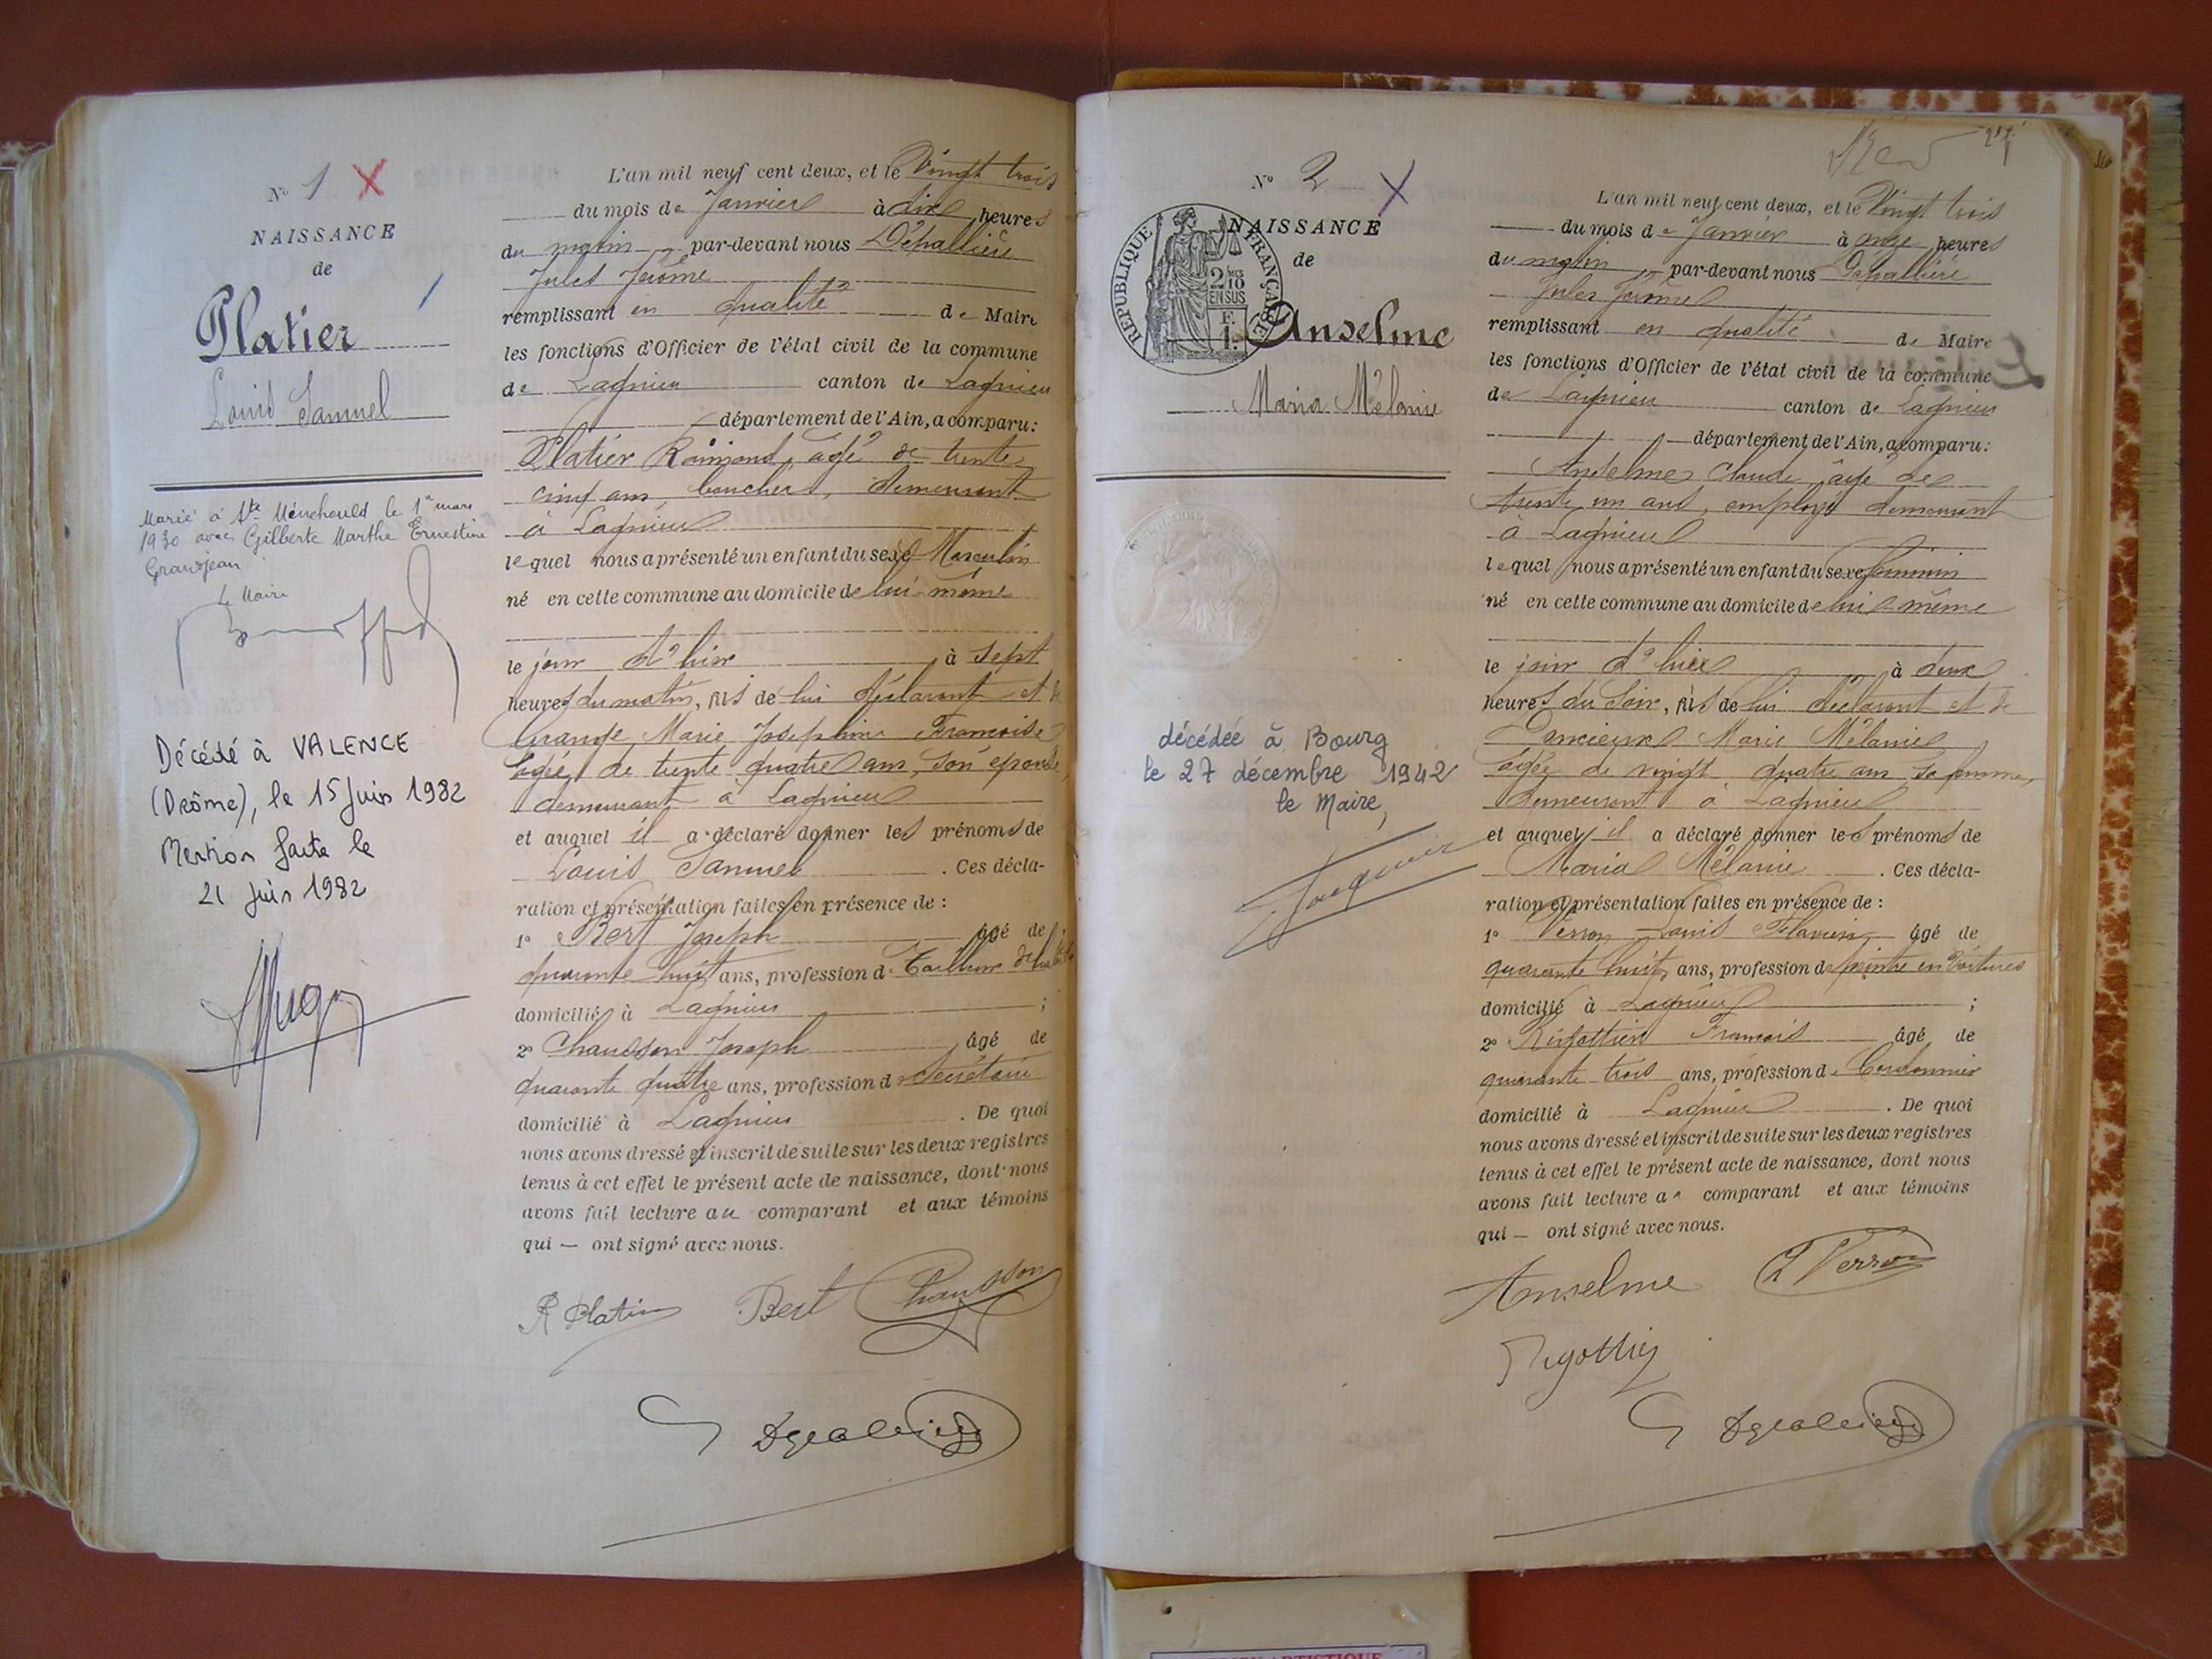 Nº 1 X
NAISSANCE
de
Platier
Louis Samuel
Marié à Ste Ménehould le 1er mars
1930 avec Gilberte Marthe Ernestine
Grandjean
Le Maire
Décédé à VALENCE
(Drôme), le 15 Juin 1982
Mention faite le
21 Juin 1982
L'an mil neuf cent deux, et le Vingt trois
du mois de Janvier à dix heures
du matin par-devant nous Dépallière
Jules Jérôme
remplissant en qualité de Maire
les fonctions d'Officier de l'état civil de la commune
de Lagnieu canton de Lagnieu
département de l'Ain, a comparu:
Platier Raimond, âgé de trente
cinq ans, boucher, demeurant
à Lagnieu
lequel nous a présenté un enfant du sexe Masculin
né en cette commune au domicile de lui-même
le jour d'hier à sept
heures du matin, fils de lui déclarant et de
Grange Marie Joséphine Françoise
âgée de trente quatre ans, son épouse,
demeurant à Lagnieu
et auquel il a déclaré donner les prénoms de
Louis Samuel . Ces décla-
ration et présentation faites en présence de :
1º Bert Joseph âgé de
quarante huit ans, profession de Tailleur
domicilié à Lagnieu ;
2º Chausson Joseph âgé de
quarante quatre ans, profession de Secrétaire
domicilié à Lagnieu . De quoi
nous avons dressé et inscrit de suite sur les deux registres
tenus à cet effet le présent acte de naissance, dont nous
avons fait lecture au comparant et aux témoins
qui — ont signé avec nous.
Bert Chausson
Nº 2 X
RÉPUBLIQUE FRANÇAISE
2/10 EN SUS
NAISSANCE
de
Anselme
Maria Mélanie
décédée à Bourg
le 27 décembre 1942
le Maire,
L'an mil neuf cent deux, et le Vingt trois
du mois de Janvier à onze heures
du matin par-devant nous Dépallière
Jules Jérôme
remplissant en qualité de Maire
les fonctions d'Officier de l'état civil de la commune
de Lagnieu canton de Lagnieu
département de l'Ain, a comparu:
Anselme Claude, âgé de
trente un ans, employé demeurant
à Lagnieu
lequel nous a présenté un enfant du sexe féminin
né en cette commune au domicile de lui-même
le jour d'hier à deux
heures du Soir, fils de lui déclarant et de
Marie Mélanie
âgée de vingt quatre ans sa femme,
demeurant à Lagnieu
et auquel il a déclaré donner les prénoms de
Maria Mélanie . Ces décla-
ration et présentation faites en présence de :
1º Verron Louis âgé de
quarante huit ans, profession de peintre en Voitures
domicilié à Lagnieu ;
2º François âgé de
quarante trois ans, profession de Cordonnier
domicilié à Lagnieu . De quoi
nous avons dressé et inscrit de suite sur les deux registres
tenus à cet effet le présent acte de naissance, dont nous
avons fait lecture au comparant et aux témoins
qui — ont signé avec nous.
Anselme Verron